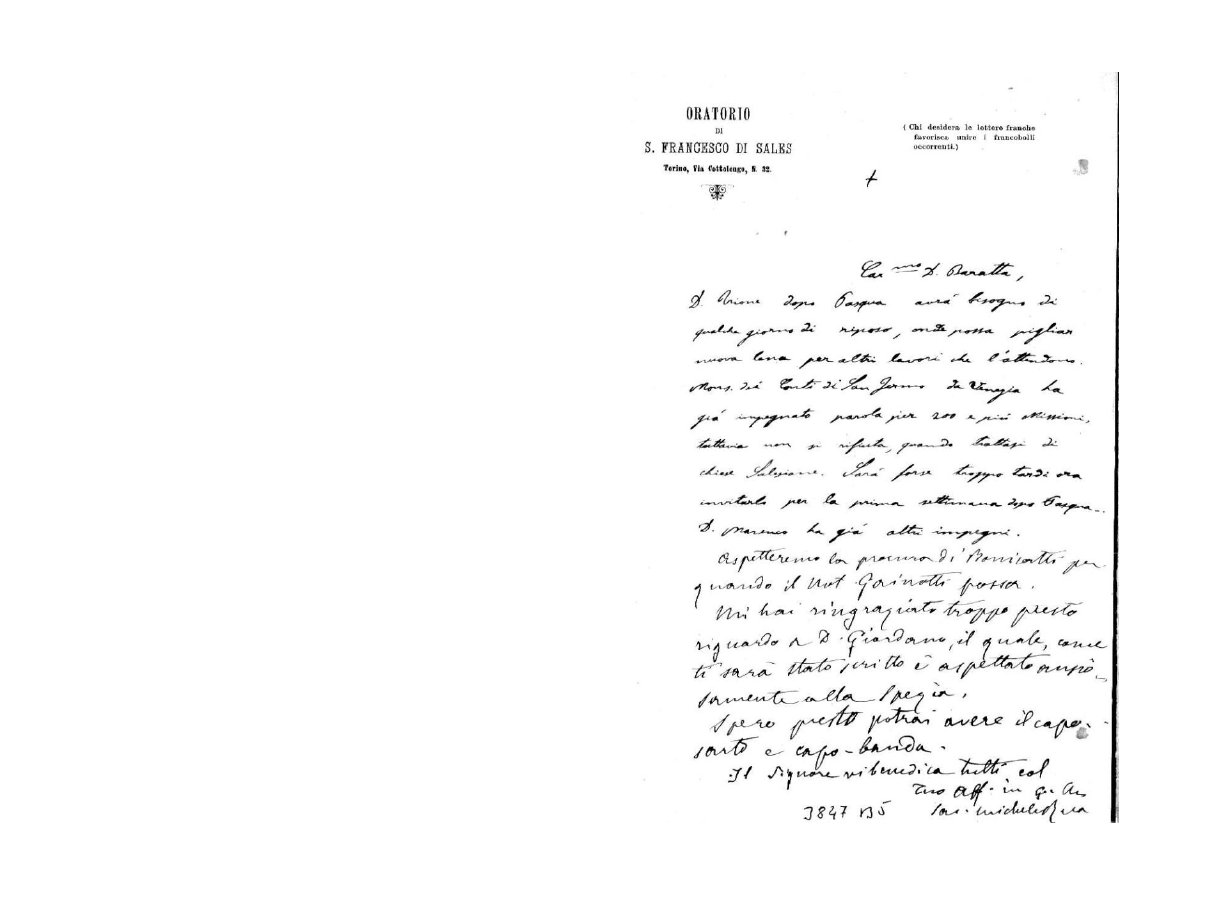 ORATORIO
DI
S. FRANCESCO DI SALES
Torino, Via Cottolengo, N. 32.
(Chi desidera le lettere franche
favorisca unire i francobolli
occorrenti.)
Car mo D. Baratta,
D. Arione dopo Pasqua avrá bisogno di
qualche giorno di riposo, onde possa pigliar
nuova lena per altri lavori che l'attendono.
Mons. dei Conti di San Fermo da Venezia ha
giá impegnato parola per 200 e piú Missioni,
tuttavia non si rifiuta, quando trattasi di
chiese Salesiane. Sará forse troppo tardi ora
invitarlo per la prima settimana dopo Pasqua...
D. Marenco ha giá altri impegni.
Aspetteremo la procura di per
quando il Not possa.
Mi hai ringraziato troppo presto
riguardo a D. Giordano, il quale, come
ti sará stato scritto é aspettato ansio-
samente alla Spezia.
Spero presto potrai avere il capo-
sarto e capo-banda.
Il Signore vi benedica tutti col
Tuo Aff. in
Sac. Michele Rua
3847 B5